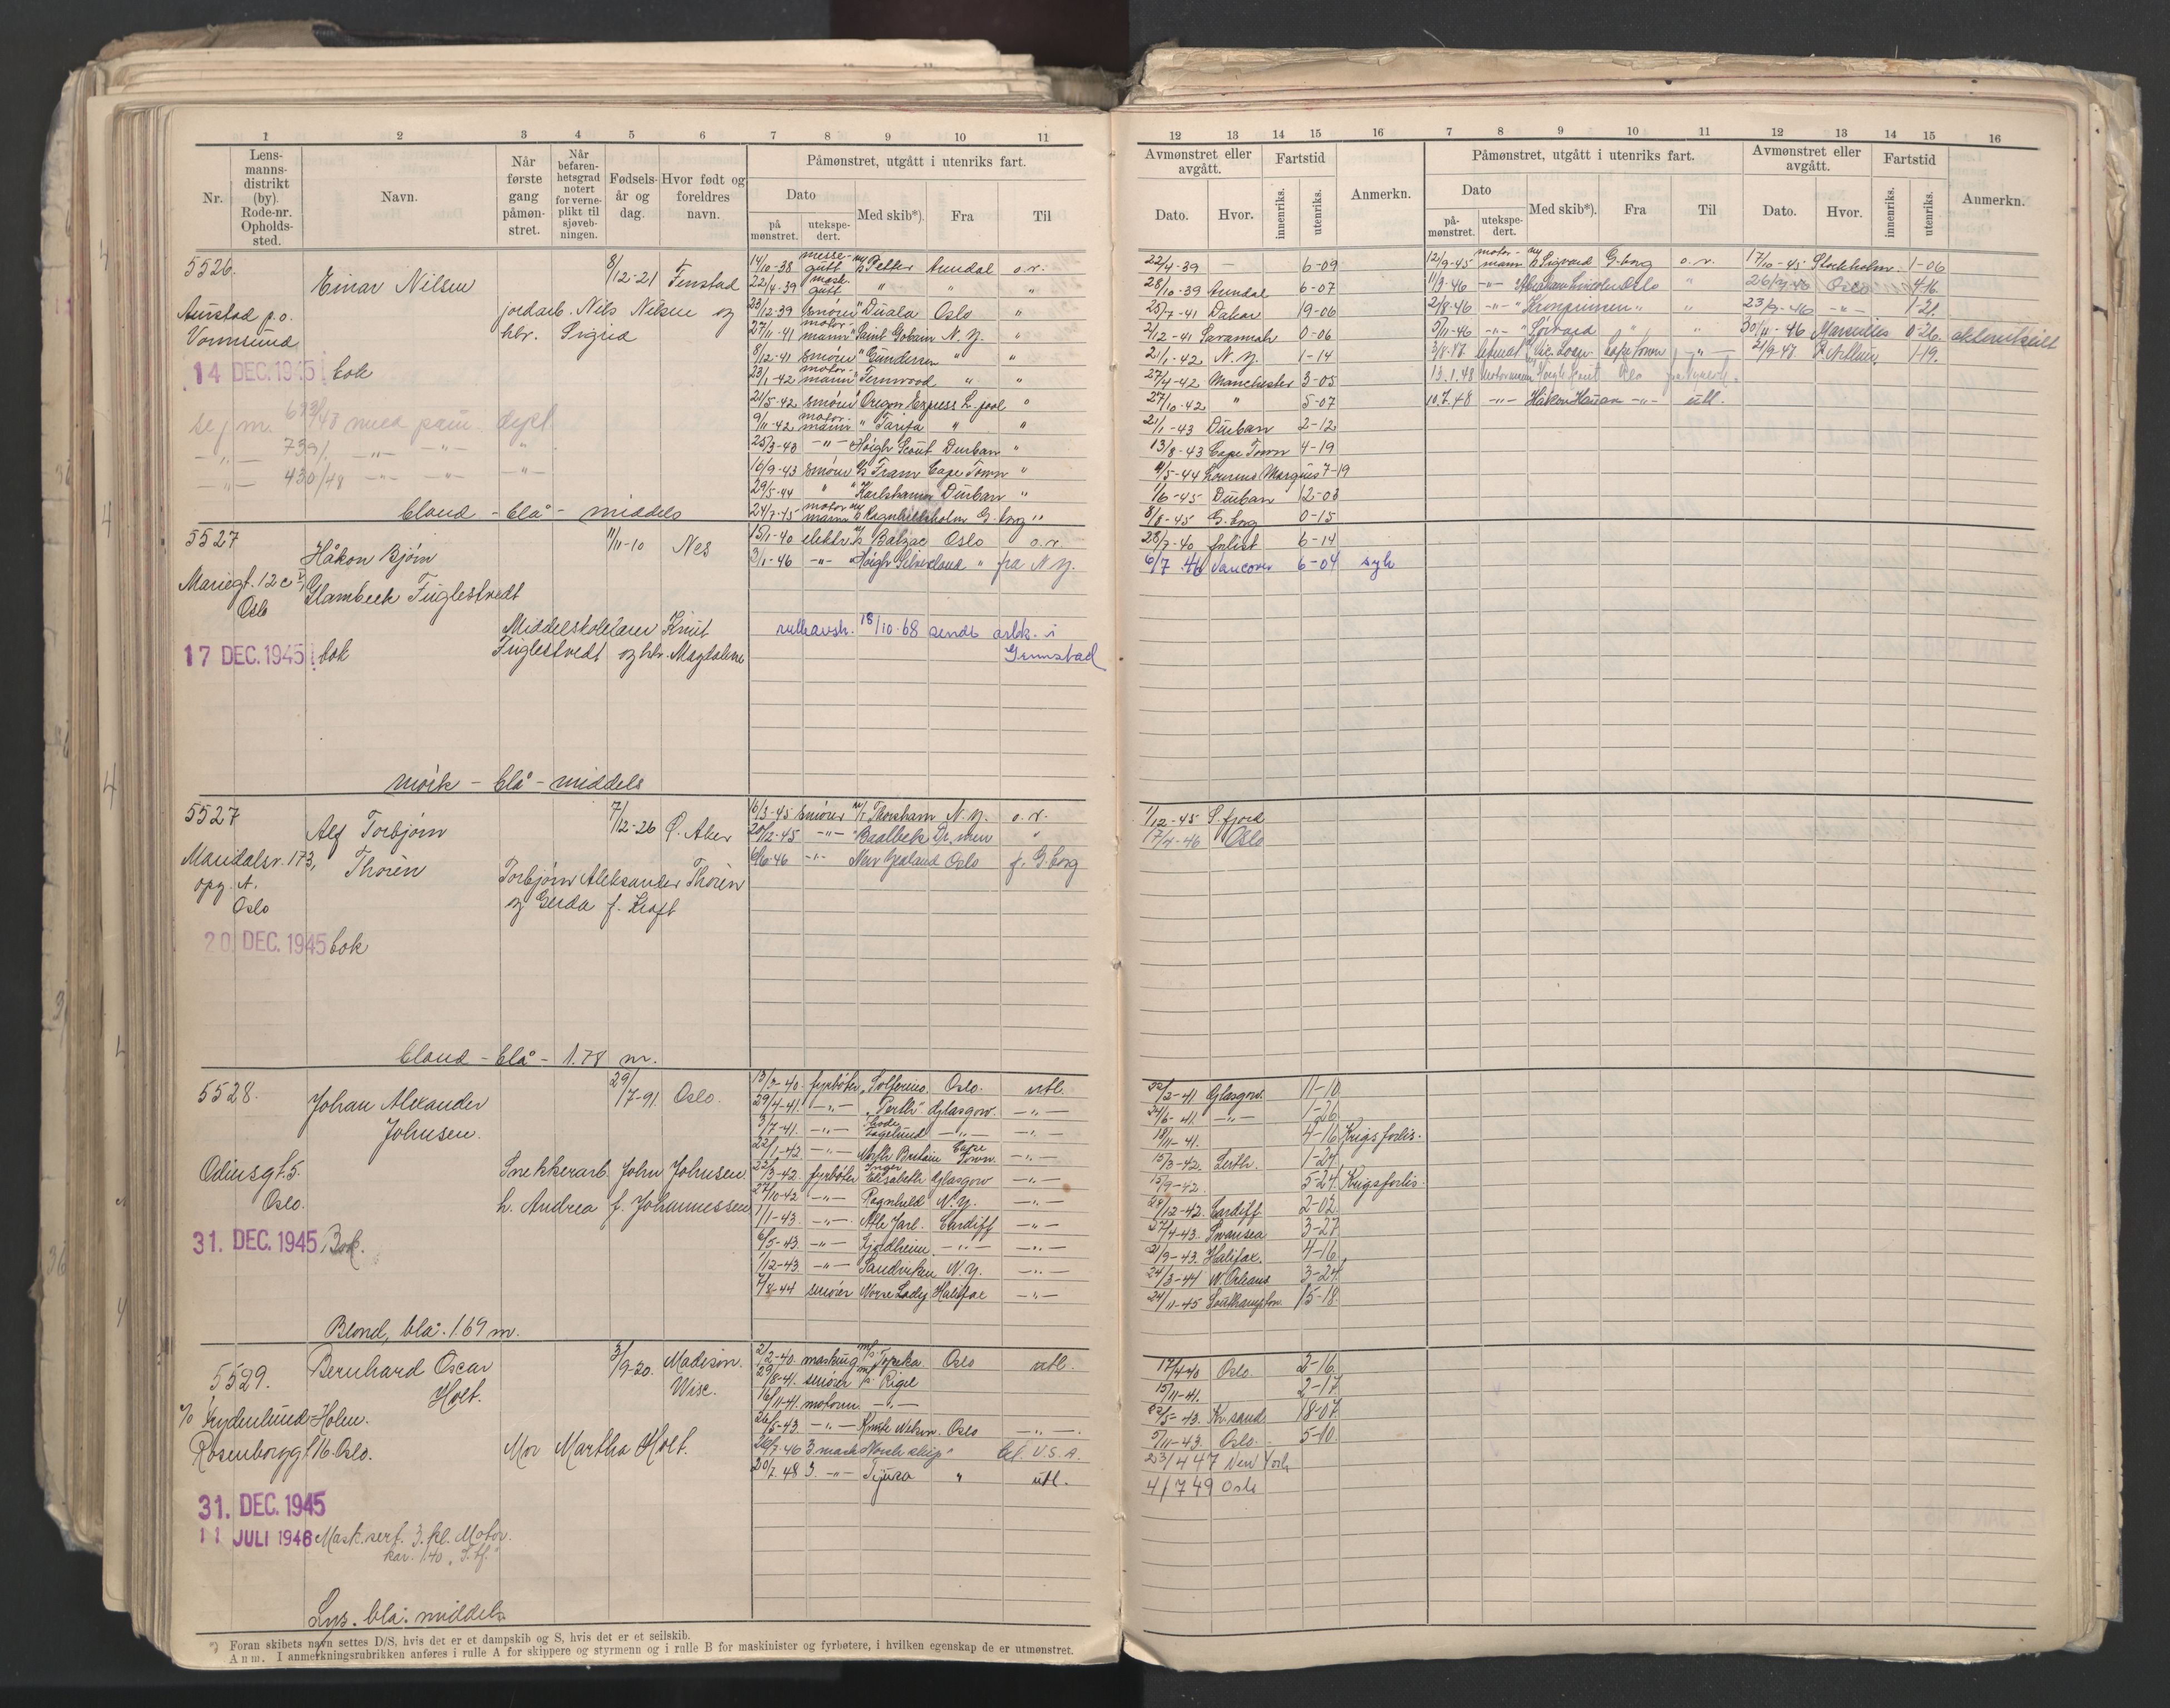 1 2 3 4 5 6 7 8 9 10 11
Nr.
Lens-
manns-
distrikt
(by).
Rode-nr.
Opholds-
sted.
Navn.
Når
første
gang
påmøn-
stret.
Når
befaren-
hetsgrad
notert
for verne-
plikt til
sjøveb-
ningen.
Fødsels-
år og
dag.
Hvor født og
foreldres
navn.
Påmønstret, utgått i utenriks fart.
Dato
på
mønstret.
utekspe-
dert.
Med skib*).
Fra
Til
5526.
Einar Nilsen
8/12-21 Fenstad
Auustad p.o.
Vormsund
jordarb. Nils Nilsen og
hbr. Sigrid
14 DEC. 1945 bok
14/10-38 messegutt Petter Arendal o.r.
22/4-39 mask.gutt " " "
23/12-39 smører " Duala Oslo "
27/11-41 motormann " Saint Gobain N.Y. "
8/12-41 smører " Gundersen " "
23/1-42 motormann " Fernwood " "
21/5-42 smører " Oregon Express L.pool "
9/11-42 motormann " Tarifa " "
25/3-43 -"- " Høigh Scout Durban "
16/9-43 smører Fram Cape Town "
29/5-44 " " Karlshamn Durban "
24/7-45 motormann Ragnhildsholm G.borg "
bland - blå - middels
5527
Håkon Bjørn
Glambeck Fuglestvedt
11/11-10 Nes
Mariegt. 12c
Oslo
Middelskolelærer Knut
Fuglestvedt og hbr. Magdalene
17 DEC. 1945 bok
15/1-40 elektr. Balzac Oslo o.r.
3/1-46 -"- " Høigh Silvercloud " fra N.Y.
rulleavskr. 18/10-68 sendt arbk. i
Grimstad
mørk - blå - middels
5527
Alf Torbjørn
Thorén
7/12-26 Ø. Aker
Maridalsv. 173,
opg. A.
Oslo
Torbjørn Aleksander Thorén
og Gerda f. Kraft
20 DEC. 1945 bok
16/3-45 smører M/T Thorshavn N.Y. o.r.
20/12-45 -"- " Baalbek Dr.men "
6/6-46 -"- New Zealand Oslo f. G.borg
bland - blå - 1.78 m.
5528.
Johan Alexander
Johnsen.
29/7-91. Oslo.
Odinsgt. 5.
Oslo.
Snekkerarb. John Johnsen.
h. Andrea f. Johannessen
31. DEC. 1945 Bok.
13/3-40. fyrbøter "Solferino. Oslo. utl.
29/4-41. -"- "Perth" Glasgow. -"-
3/7-41. -"- Fagelund -"- -"-
22/1-42 -"- North Britain Cape Town. -"-
22/3-42. fyrbøter Inger Elisabeth Glasgow -"-
27/10-42 -"- Ragnhild N.Y. -"-
1/1-43. -"- Atle Jarl. Cardiff -"-
6/5-43. -"- Gjeldheim -"- -"-
1/12-43. -"- Sandviken N.Y. -"-
7/8-44 smører Norse Lady Halifax -"-
Blond, blå. 1.69 m.
5529.
Bernhard Oscar
Holt.
3/9-20. Madison.
Wisc.
c/o Frydenlund Holm.
Rosenborggt. 16. Oslo.
Mor Martha Holt.
31. DEC. 1945
11 JULI 1946 Mask.sert. 3. kl. Motor.
2/2-40. masking. m/s. Topeka Oslo utl.
29/8-41. smører m/s Rigel
16/11-41. motorm. -"-
26/5-43. -"- Knute Nelson. Oslo -"-
26/7-46 3 mask "North ship" til U.S.A.
20/7.48 3. -"- Tijuca " utl.
Lys. blå. middels
*) Foran skibets navn settes D/S, hvis det er et dampskib og S, hvis det er et seilskib.
Anm. I anmerkningsrubrikken anføres i rulle A for skippere og styrmenn og i rulle B for maskinister og fyrbøtere, i hvilken egenskap de er utmønstret.
12 13 14 15 16 7 8 9 10 11 12 13 14 15 16
Avmønstret eller
avgått.
Fartstid
Dato. Hvor.
innenriks.
utenriks.
Anmerkn.
Påmønstret, utgått i utenriks fart.
Dato
på-
mønstret.
utekspe-
dert.
Med skib*). Fra Til
Avmønstret eller
avgått.
Fartstid
Dato. Hvor.
innenriks.
utenriks.
Anmerkn.
22/4-39 - 6-09
28/10-39 Arendal 6-07
25/7-41 Dakar 19-06
2/12-41 Savannah 0-06
21/1-42 N.Y. 1-14
27/4-42 Manchester 3-05
27/10-42 " 5-07
21/1-43 Durban 2-12
13/8-43 Cape Town 4-19
11/5-44 Lourenco Marques 7-19
1/6-45 Durban 12-03
8/8-45 G.borg 0-15
12/9-45 motormann Sigvard G.borg o.r. 17/10-45 Stockholm 1-06
11/3-46 -"- Abraham Lincoln Oslo " 26/7-46 Oslo 4-16
2/8-46 -"- " Kronprinsen " " 23/9-46 -"- 1-21.
5/11-46 -"- " Sørvard " " 30/11-46 Marseilles 0-26.
3/8-47 Cape Town -"- 21/9-47 1-19.
13.1.48 Motormann Høigh Scout Oslo
10.7.48 -"- Håkon Hauan -"- utl.
28/7-40 forlist 6-14
6/7 46 Vancover 6-04 syk
1/12-45 S.fjord
17/4-46 Oslo
22/2-41 Glasgow. 11-10
24/6-41. -"- 1-26
18/11-41. 4-16 Krigsforlis.
15/3-42. Leith. 1-24
15/9-42. 5-24. Krigsforlis.
28/12-42. Cardiff. 2-02
27/4-43. Swansea 3-27
21/9-43. Halifax. 4-16
24/3-44 N. Orleans 3-24
24/11-45 Southampton. 15-18
17/4-40 Oslo. 2-16
15/11-41. 2-17
22/5-43. Kr.sand. 18-07
5/11-43. Oslo. 5-10
23/4 47 New York
4/7 49 Oslo